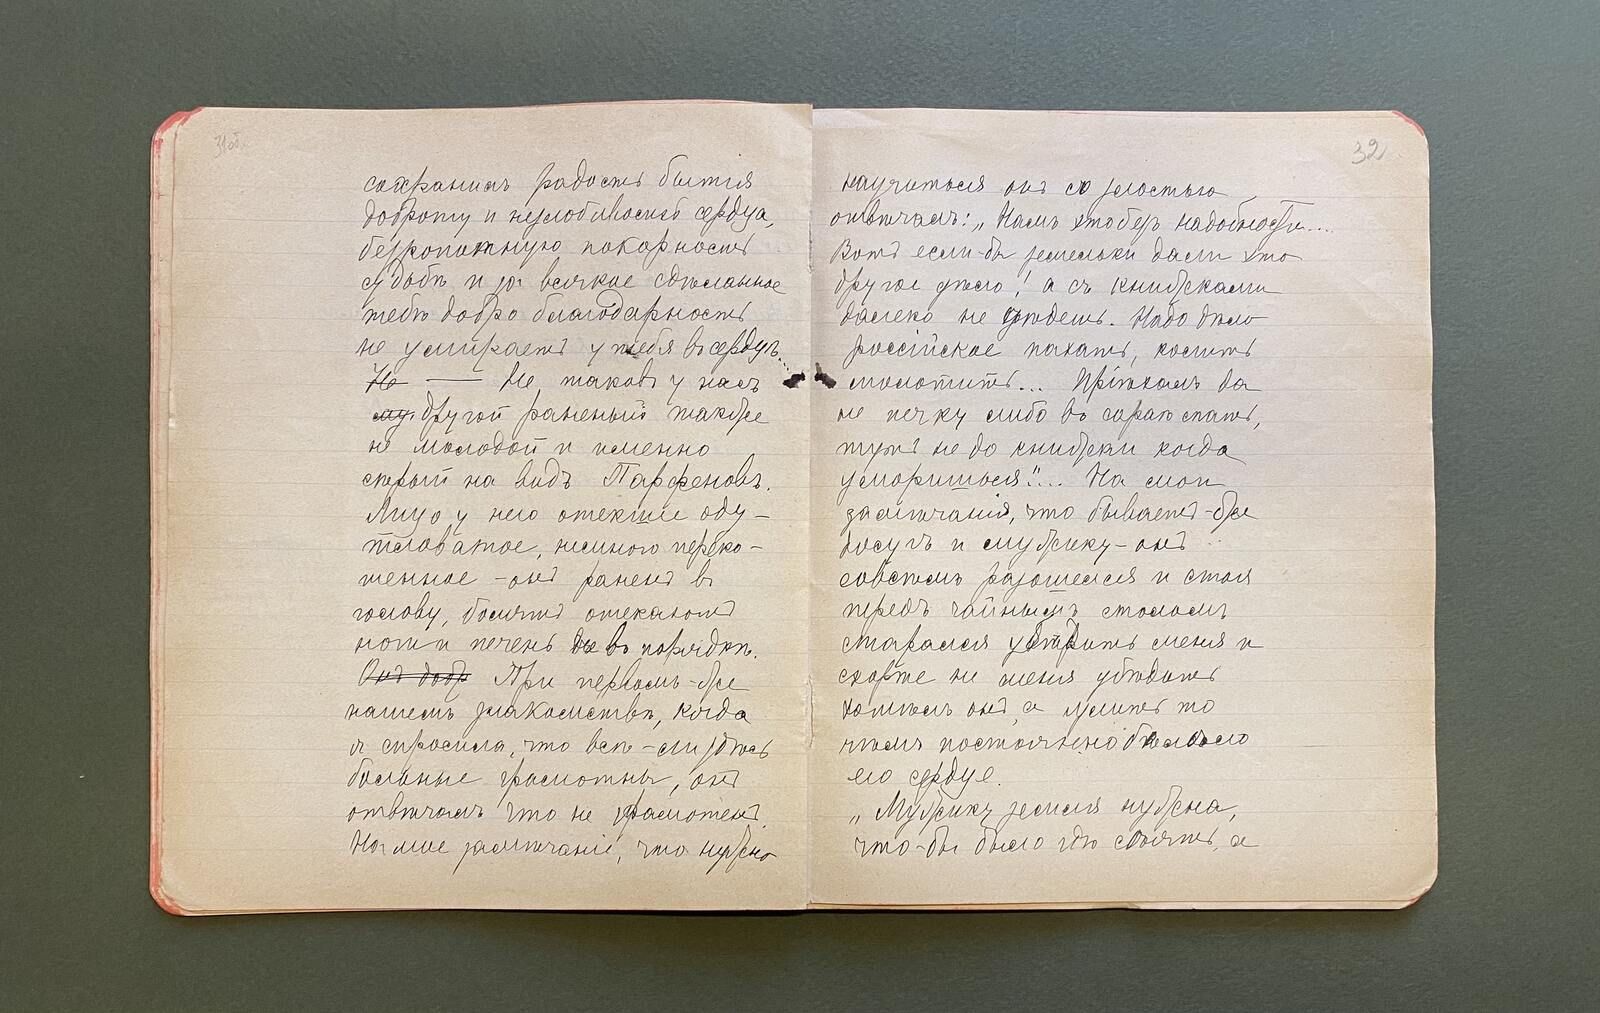 31об.
сохранилъ радость бытія
доброту и незлобивость сердца,
безропотную покорность
судьбѣ и за всякое сдѣланное
тебѣ добро благодарность
не умираетъ у тебя въ сердцѣ.
Но — Не таковъ у насъ
другой раненый также
не молодой и именно
старый на видъ Парфеновъ.
Лицо у него отекшее оду-
тловатое, немного переко-
шенное - онъ раненъ въ
голову, болятъ отекаютъ
ноги и печень не въ порядкѣ.
Онъ добр При первомъ-же
нашемъ знакомствѣ, когда
я спросила, что всѣ-ли здѣсь
больные грамотны, онъ
отвѣчалъ что не грамотенъ.
На мое замѣчаніе, что нужно
32
научиться онъ со злостью
отвѣчалъ: „Намъ это безъ надобности...
Вотъ если-бы земельки дали это
другое дѣло! а съ книжками
далеко не уѣдешь. Надо дѣло
россійское пахать, косить
молотить... Пріѣхалъ да
на печку либо въ сарай спать,
тутъ не до книжки когда
уморишься"... На мои
замѣчанія, что бываетъ-же
досугъ и мужику - онъ
совсѣмъ разошелся и стоя
передъ чайнымъ столомъ
старался увѣрить меня и
скорѣе не меня убѣдить
хотѣлъ онъ, а излить то
чѣмъ постоянно болѣло
его сердце.
„Мужику земля нужна,
что-бы было гдѣ сѣять, а